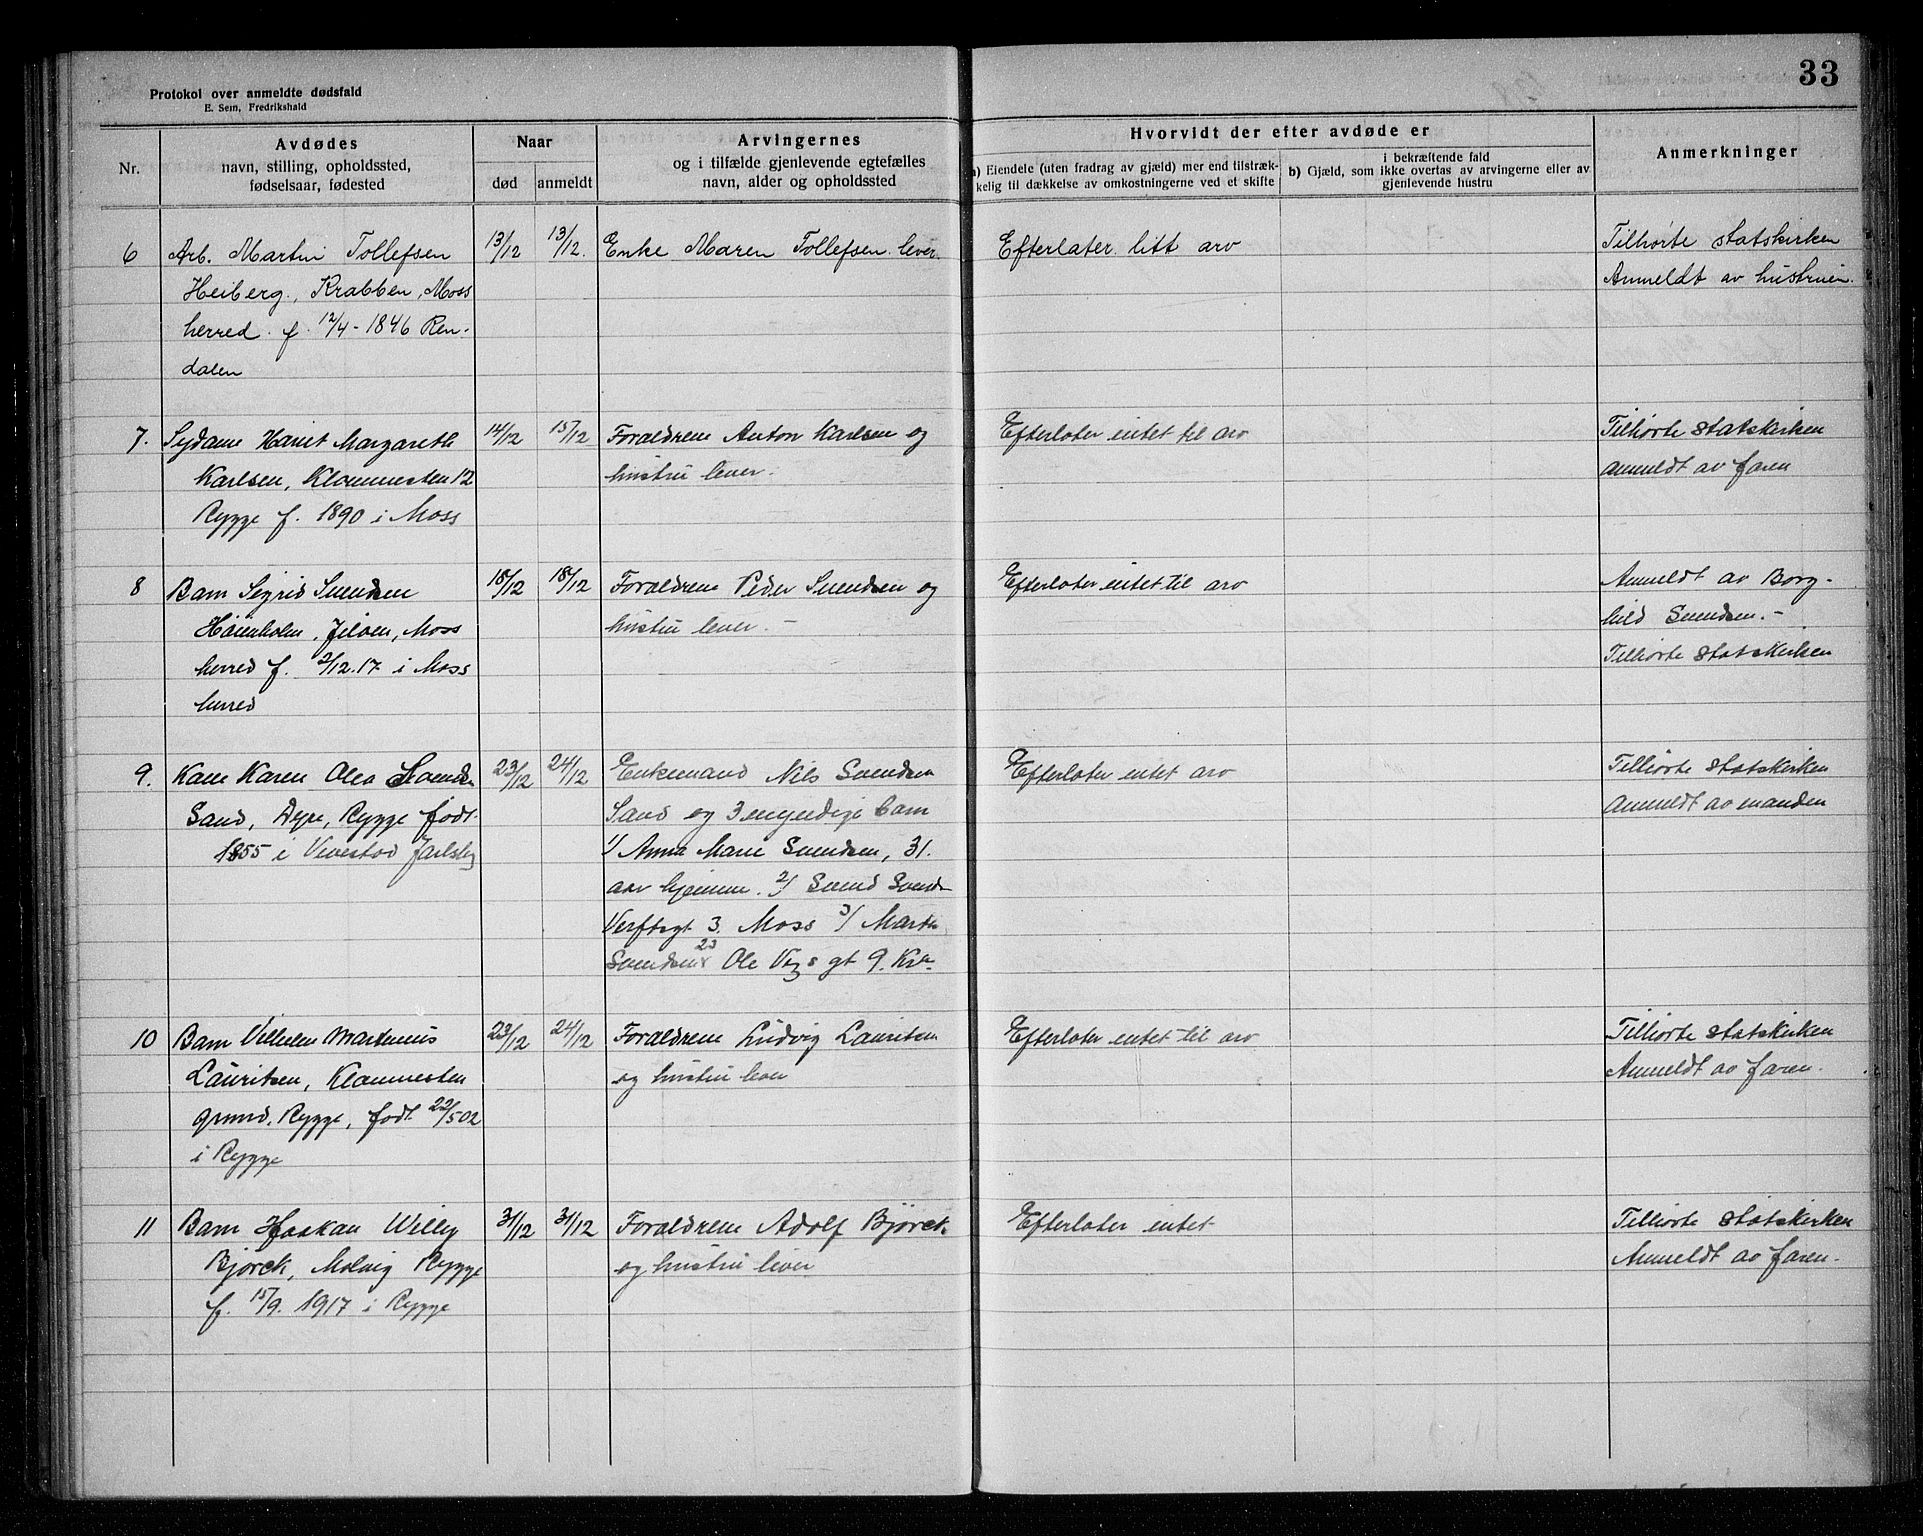 33
Protokol over anmeldte dødsfald
E. Sem, Fredrikshald
Nr.
Avdødes
navn, stilling, opholdssted,
fødselsaar, fødested
Naar
død
anmeldt
Arvingernes
og i tilfælde gjenlevende egtefælles
navn, alder og opholdssted
Hvorvidt der efter avdøde er
a) Eiendele (uten fradrag av gjæld) mer end tilstræk-
kelig til dækkelse av omkostningerne ved et skifte
i bekræftende fald
b) Gjæld, som ikke overtas av arvingerne eller av
gjenlevende hustru
Anmerkninger
6
Arb. Martin Tollefsen
Heiberg, Krabben, Moss
herred. f. 12/4-1846 Ren-
dalen
13/12
13/12.
Enke Maren Tollefsen lever.
Efterlater litt arv
Tilhørte statskirken
Anmeldt av hustruen.
7.
Sydame Hariet Margareth
Karlsen, Klommesten 12
Rygge f. 1890 i Moss
14/12
15/12
Foraldrene Anton Karlsen og
hustru lever.
Efterlater intet til arv
Tilhørte statskirken
anmeldt av faren
8
Barn Sigrid Svendsen
Høienholm, Jeløen, Moss
herred f. 2/12.17 i Moss
herred
18/12
18/12
Foraldrene Peder Svendsen og
hustru lever. -
Efterlater intet til arv
Anmeldt av Borg-
hild Svendsen. -
Tilhørte statskirken
9.
Kone Karen Olea Svends.
Sand, Dyre, Rygge født
1855 i Vivestad Jarlsbg
23/12
24/12
Enkemand Nils Svendsen
Sand og 3 myndige barn
1/ Anna Marie Svendsen, 31.
aar hjemme. 2/ Svend Svends-
Verftsgt 3. Moss 3/ Martin
Svendsen 23 Ole Vigs gt 9. Kr.a
Efterlater intet arv
Tilhørte statskirken
Anmeldt av manden
10
Barn Vilhelm Martinius
Lauritsen, Klommesten
grund, Rygge, født 22/5 02
i Rygge
23/12
24/12
Foraldrene Ludvig Lauritsen
og hustru lever
Efterlater intet til arv
Tilhørte statskirken
Anmeldt av faren.
11
Barn Haakan Willy
Bjørck, Molvig Rygge
f. 15/9. 1917 i Rygge
31/12
31/12
Foraldrene Adolf Bjørck
og hustru lever
Efterlater intet
Tilhørte statskirken
Anmeldt av faren.